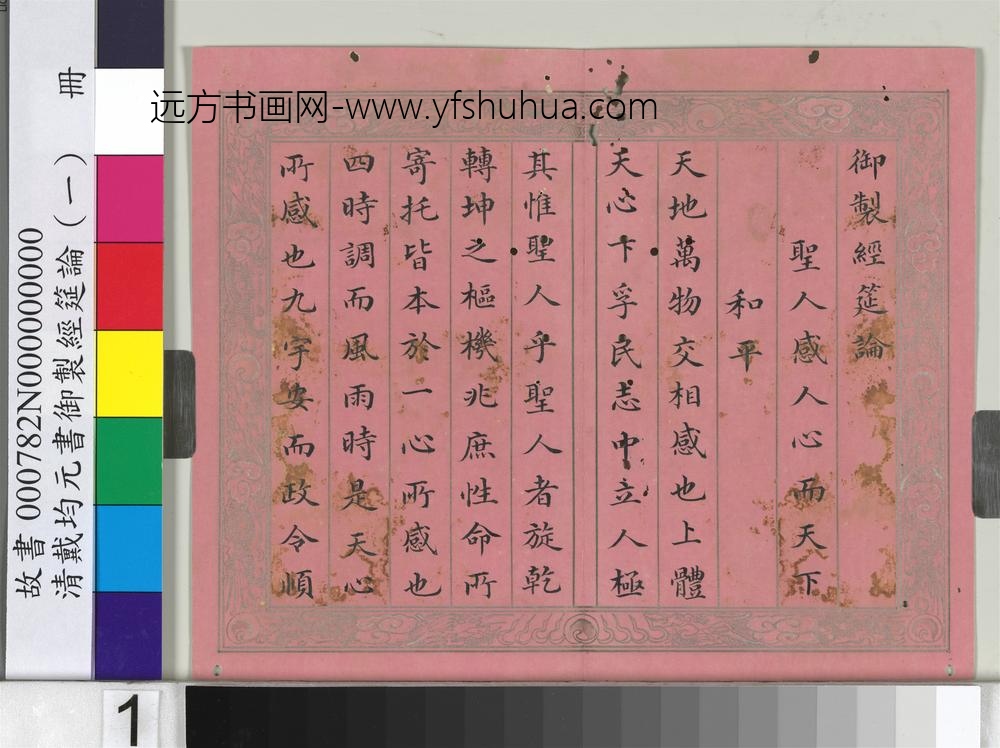 御製經筵論
聖人感人心而天下
和平
天地萬物交相感也上體
天心下孚民志中立人極
其惟聖人乎聖人者旋乾
轉坤之樞機兆庶性命所
寄托皆本於一心所感也
四時調而風雨時是天心
所感也九宇安而政令順
远方书画网-www.yfshuhua.com
故書 000782N000000000
清戴均元書御製經筵論(一) 冊
1